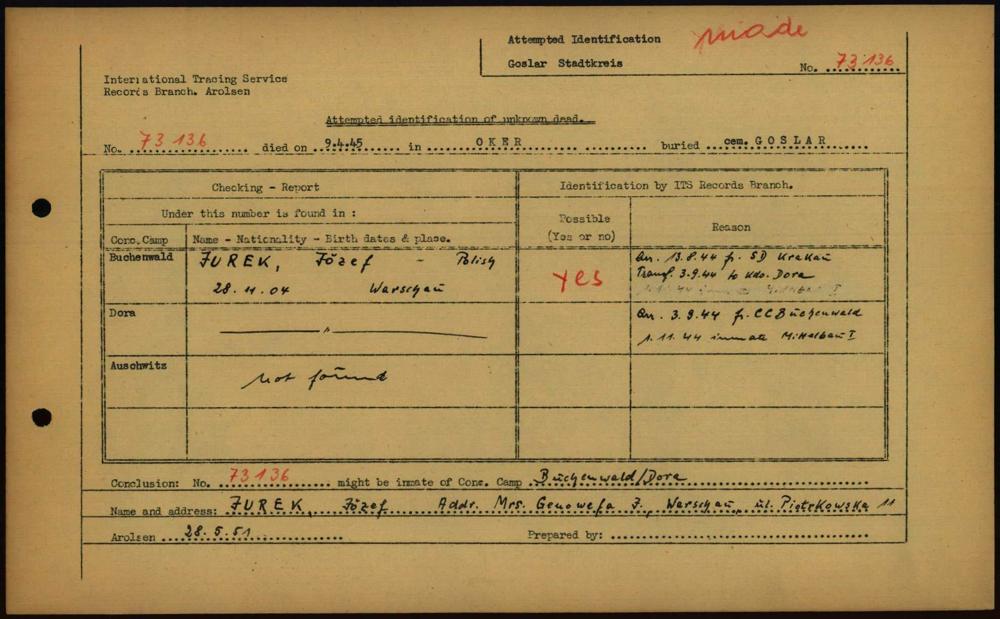 Attempted Identification made
Goslar Stadtkreis No. 73136
International Tracing Service
Records Branch. Arolsen
Attempted identification of unknown dead.
No. 73136 died on 9.4.45 in OKER buried cem. GOSLAR
Checking - Report Identification by ITS Records Branch.
Under this number is found in : Possible (Yes or no) Reason
Conc. Camp Name - Nationality - Birth dates & place.
Buchenwald ŻUREK, Józef - Polish yes Arr. 13.8.44 fr. SD Krakau
28.11.04 Warschau Transf. 3.9.44 to Kdo. Dora
1.11.44 inmate Mittelbau I
Dora " Arr. 3.9.44 fr. CC Buchenwald
1.11.44 inmate Mittelbau I
Auschwitz not found
Conclusion: No. 73136 might be inmate of Conc. Camp Buchenwald/Dora
Name and address: ŻUREK, Józef Addr. Mrs. Genowefa Ż., Warschau, ul. Piotrkowska 11
Arolsen 28.5.51 Prepared by: